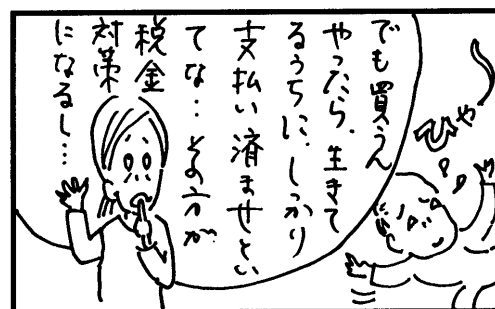 でも買うん
やったら、生きて
るうちに、しっかり
支払い済ませとい
てな…その方が
税金
対策
になるし…
ひゃ〜